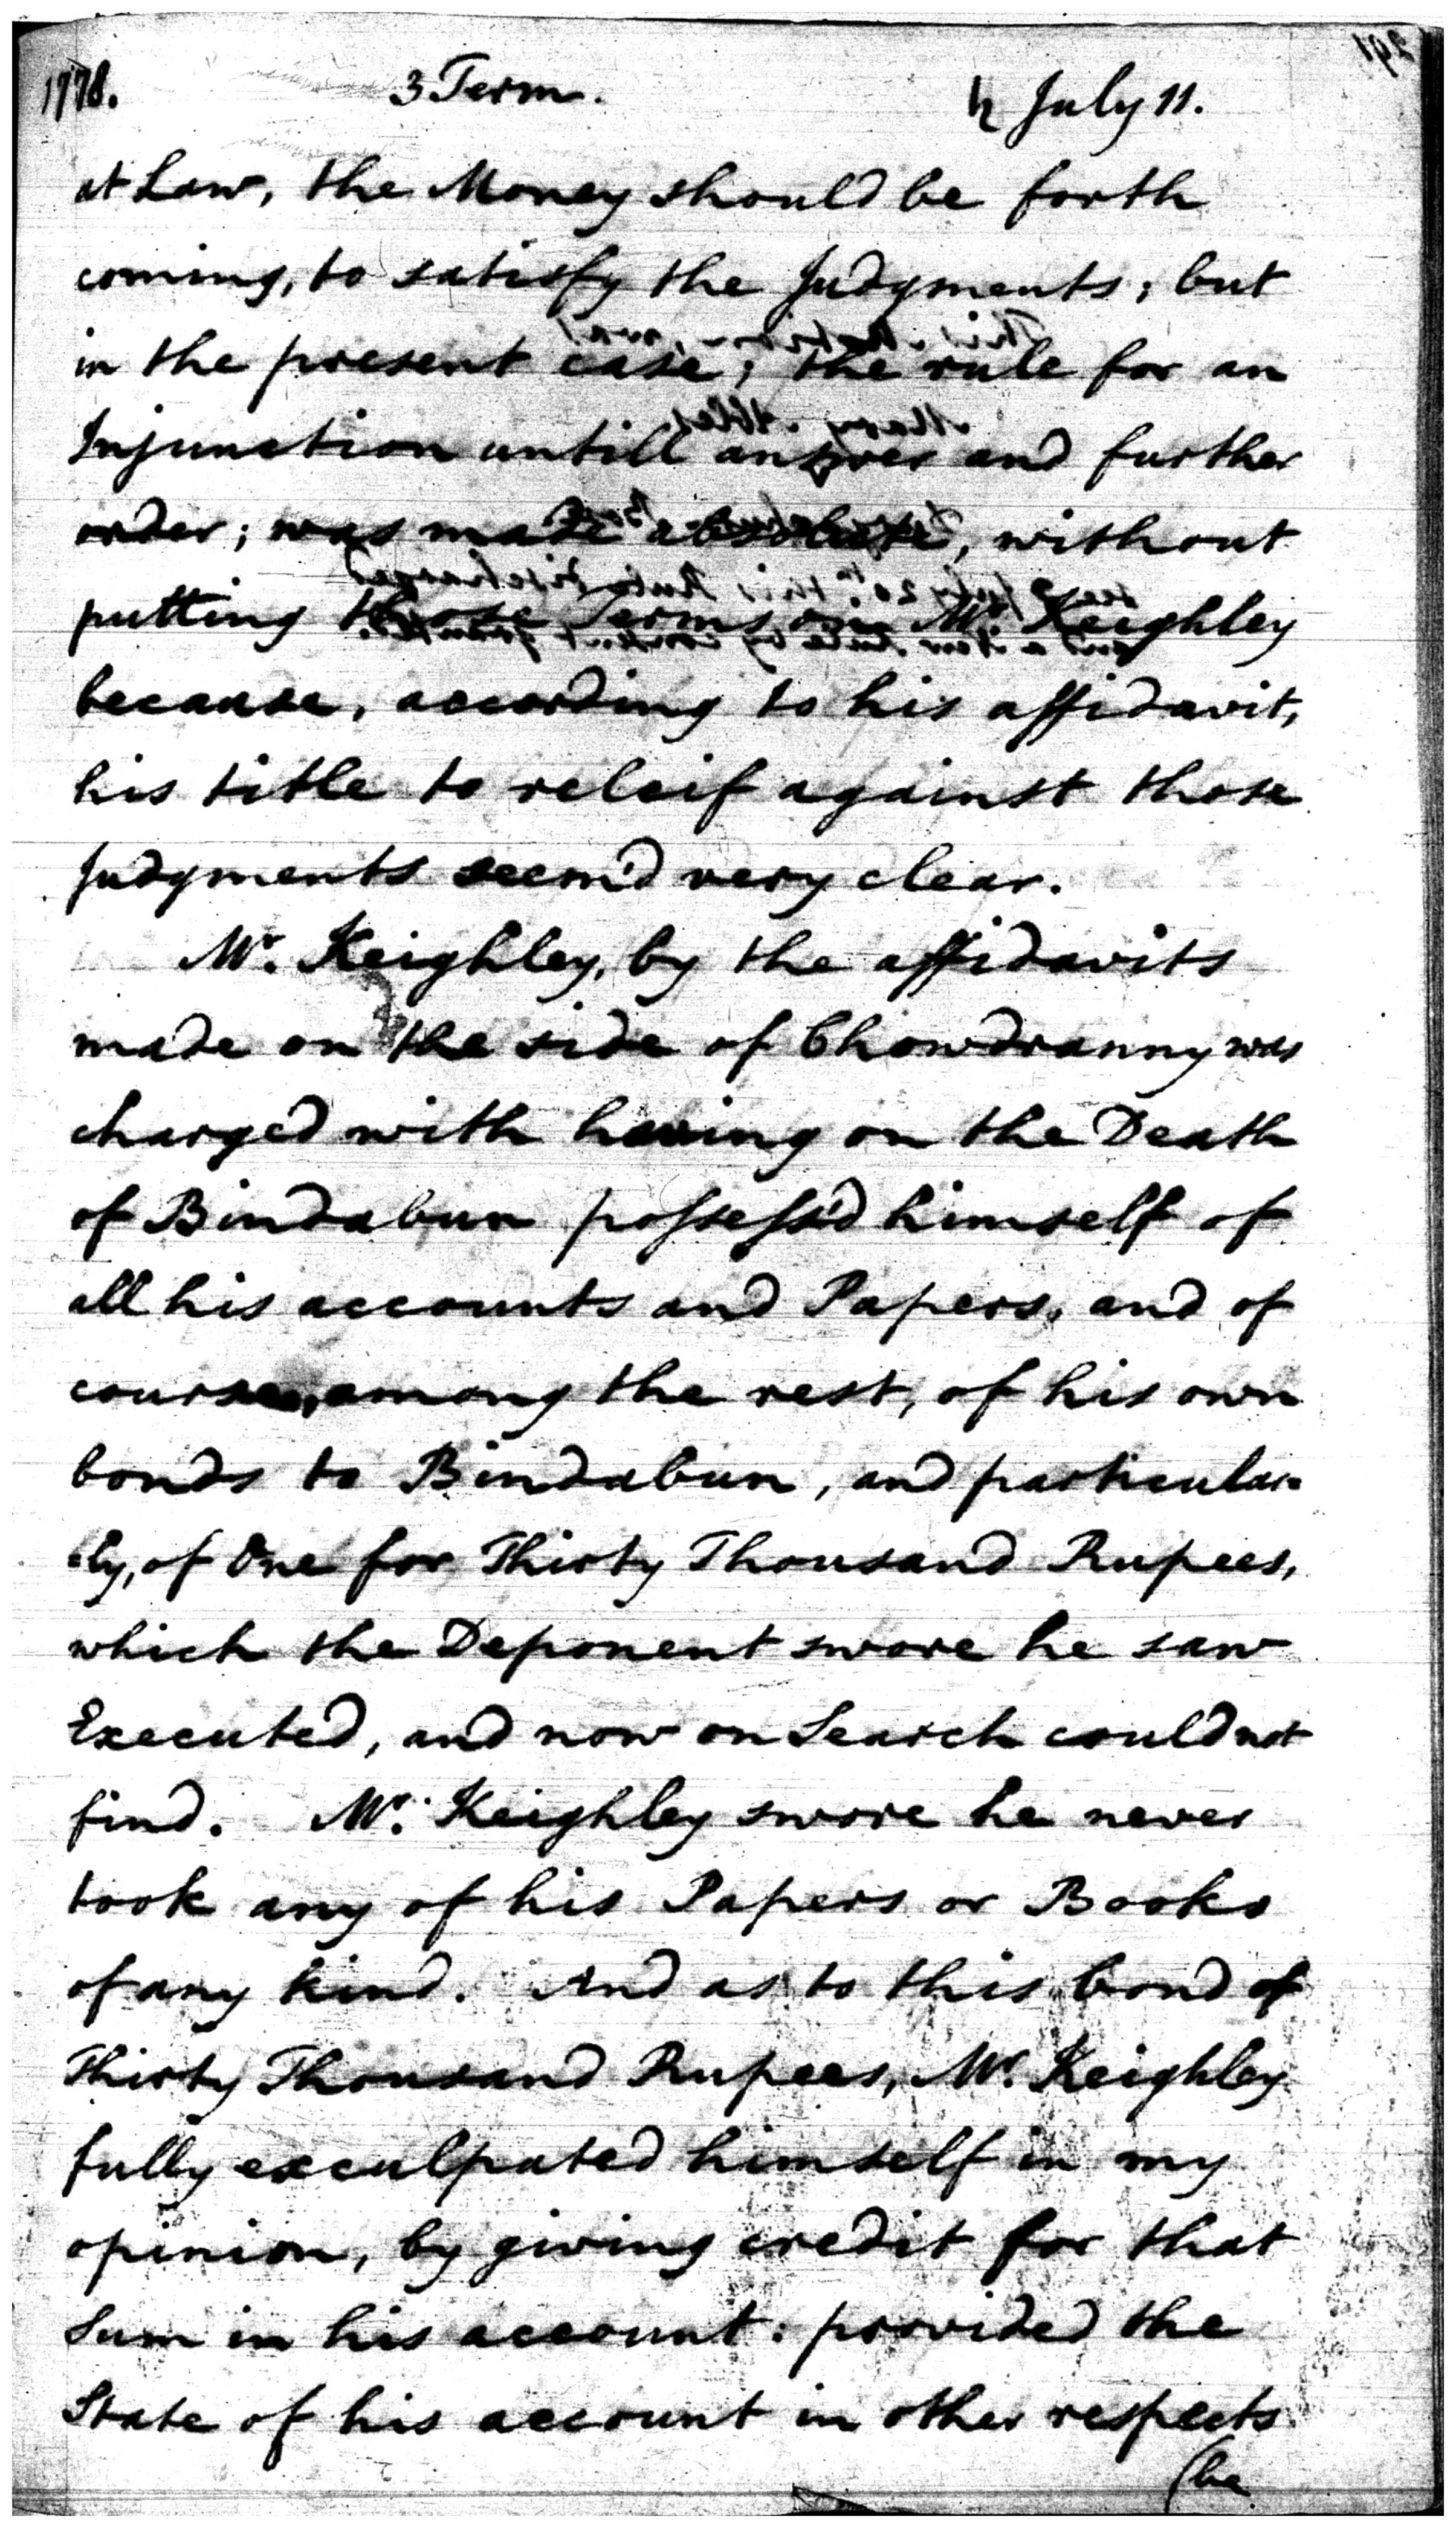 1778. 3 Term. ♄ July 11.
at Law, the Money should be forth
coming, to satisfy the Judgments; but
in the present case; the rule for an
Injunction untill answer and further
order; was made absolute, without
putting those Terms on Mr. Keighley
because, according to his affidavit,
his title to releif against those
Judgments seem'd very clear.
Mr. Keighley, by the affidavits
made on the side of Chowdranny was
charged with having on the Death
of Bindabun possess'd himself of
all his accounts and Papers, and of
course, among the rest, of his own
bonds to Bindabun, and particular=
=ly, of One for Thirty Thousand Rupees,
which the Deponent swore he saw
Executed, and now on Search could not
find. Mr. Keighley swore he never
took any of his Papers or Books
of any kind. And as to this bond of
Thirty Thousand Rupees, Mr. Keighley
fully exculpated himself in my
opinion, by giving credit for that
Sum in his account: provided the
State of his account in other respects
(be